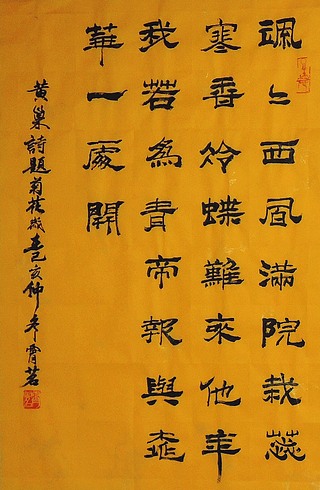 颯々西風滿院栽蕊
寒香冷蝶難來他年
我若為青帝報與桃
華一處開
黄巢詩題菊花歲在己亥仲冬霄茗